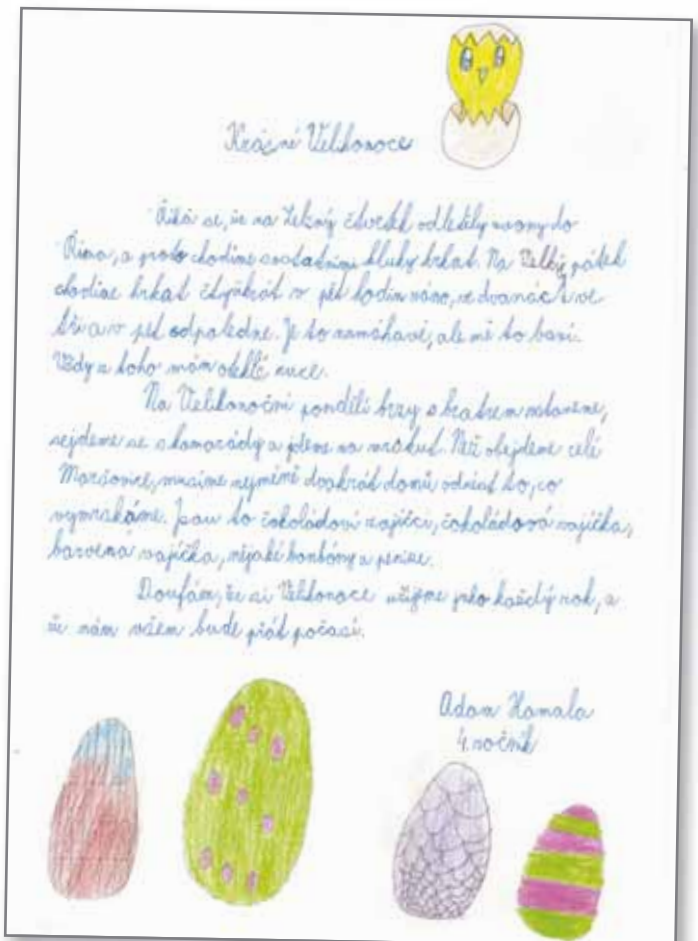 Krásné Velikonoce
Říká se, že na Zelený čtvrtek odletěly zvony do
Říma, a proto chodíme s ostatními kluky hrkat. Na Velký pátek
chodíme hrkat čtyřikrát v pět hodin ráno, ve dvanáct, ve
tři a v pět odpoledne. Je to namáhavé, ale mě to baví.
Vždy z toho mám oteklé ruce.
Na Velikonoční pondělí brzy s bratrem vstaneme,
sejdeme se s kamarády a jdeme na mrskut. Než obejdeme celé
Maršovice, musíme nejméně dvakrát domů odnést to, co
vymrskáme. Jsou to čokoládoví zajíčci, čokoládová vajíčka,
barvená vajíčka, nějaké bonbóny a peníze.
Doufám, že si Velikonoce užijme jako každý rok, a
že nám všem bude přát počasí.
Adam Hamala
4. ročník